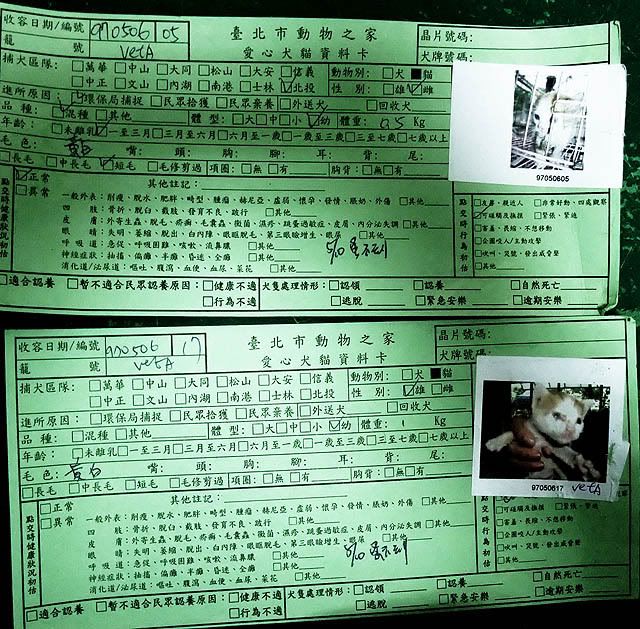 收容日期/編號 970506 05 臺北市動物之家 晶片號碼:
籠 號 VetA 愛心犬貓資料卡 犬牌號碼:
捕犬區隊: □萬華 □中山 □大同 □松山 □大安 □信義 動物別: □犬 ■貓
□中正 □文山 □內湖 □南港 □士林 ☑北投 性別: □雄 ☑雌
進所原因: □環保局捕捉 □民眾拾獲 □民眾棄養 □外送犬 □回收犬
品種: ☑混種 □其他 體型: □大 □中 □小 ☑幼 體重: 0.5 Kg
年齡: □未離乳 ☑一至三月 □三至六月 □六月至一歲 □一歲至三歲 □三至七歲 □七歲以上
毛色: 嘴: 頭: 胸: 腳: 耳: 背: 尾:
□長毛 □中長毛 ☑短毛 □毛修剪過 項圈: □無 □有 胸背: □無 □有
97050605
點交時健康狀況初估
☑正常
□異常
其他註記:
一般外表: 削瘦、脫水、肥胖、畸型、腫瘤、赫尼亞、虛弱、懷孕、發情、脹奶、外傷 □其他
四肢: 骨折、脫臼、截肢、發育不良、跛行 □其他
皮膚: 外寄生蟲、脫毛、疥癬、毛囊蟲、黴菌、濕疹、跳蚤過敏症、皮屑、內分泌失調 □其他
眼睛: 失明、萎縮、脫出、白內障、眼眶脫毛、第三眼瞼增生、眼屎 □其他
呼吸道: 急促、呼吸困難、咳嗽、流鼻膿 □其他
神經症狀: 抽搐、偏癱、半癱、昏迷、全癱 □其他
消化道/泌尿道: 嘔吐、腹瀉、血便、血尿、菜花 □其他
點交時行為初估
□友善、親近人 □非常好動、四處觀察
☑可碰觸及撫摸 □緊張、緊迫
□害羞、畏縮、不想移動
□企圖咬人/主動攻擊
□吠叫、哭號、發出威脅聲
□其他
□適合認養 □暫不適合民眾認養原因: □健康不適 犬隻處理情形: □認領 □認養 □自然死亡
□行為不適 □逃脫 □緊急安樂 □逾期安樂
收容日期/編號 970506 17 臺北市動物之家 晶片號碼:
籠 號 VetA 愛心犬貓資料卡 犬牌號碼:
捕犬區隊: □萬華 □中山 □大同 □松山 □大安 □信義 動物別: □犬 ■貓
□中正 □文山 □內湖 □南港 □士林 ☑北投 性別: ☑雄 □雌
進所原因: □環保局捕捉 □民眾拾獲 □民眾棄養 □外送犬 □回收犬
品種: □混種 □其他 體型: □大 □中 □小 ☑幼 體重: Kg
年齡: □未離乳 □一至三月 □三至六月 □六月至一歲 □一歲至三歲 □三至七歲 □七歲以上
毛色: 黃白 嘴: 頭: 胸: 腳: 耳: 背: 尾:
□長毛 □中長毛 □短毛 □毛修剪過 項圈: □無 □有 胸背: □無 □有
97050617 VetA
點交時健康狀況初估
□正常
□異常
其他註記:
一般外表: 削瘦、脫水、肥胖、畸型、腫瘤、赫尼亞、虛弱、懷孕、發情、脹奶、外傷 □其他
四肢: 骨折、脫臼、截肢、發育不良、跛行 □其他
皮膚: 外寄生蟲、脫毛、疥癬、毛囊蟲、黴菌、濕疹、跳蚤過敏症、皮屑、內分泌失調 □其他
眼睛: 失明、萎縮、脫出、白內障、眼眶脫毛、第三眼瞼增生、眼屎 □其他
呼吸道: 急促、呼吸困難、咳嗽、流鼻膿 □其他
神經症狀: 抽搐、偏癱、半癱、昏迷、全癱 □其他
消化道/泌尿道: 嘔吐、腹瀉、血便、血尿、菜花 □其他
點交時行為初估
□可碰觸及撫摸 □緊張、緊迫
□害羞、畏縮、不想移動
□企圖咬人/主動攻擊
□吠叫、哭號、發出威脅聲
□其他
□適合認養 □暫不適合民眾認養原因: □健康不適 犬隻處理情形: □認領 □認養 □自然死亡
□行為不適 □逃脫 □緊急安樂 □逾期安樂